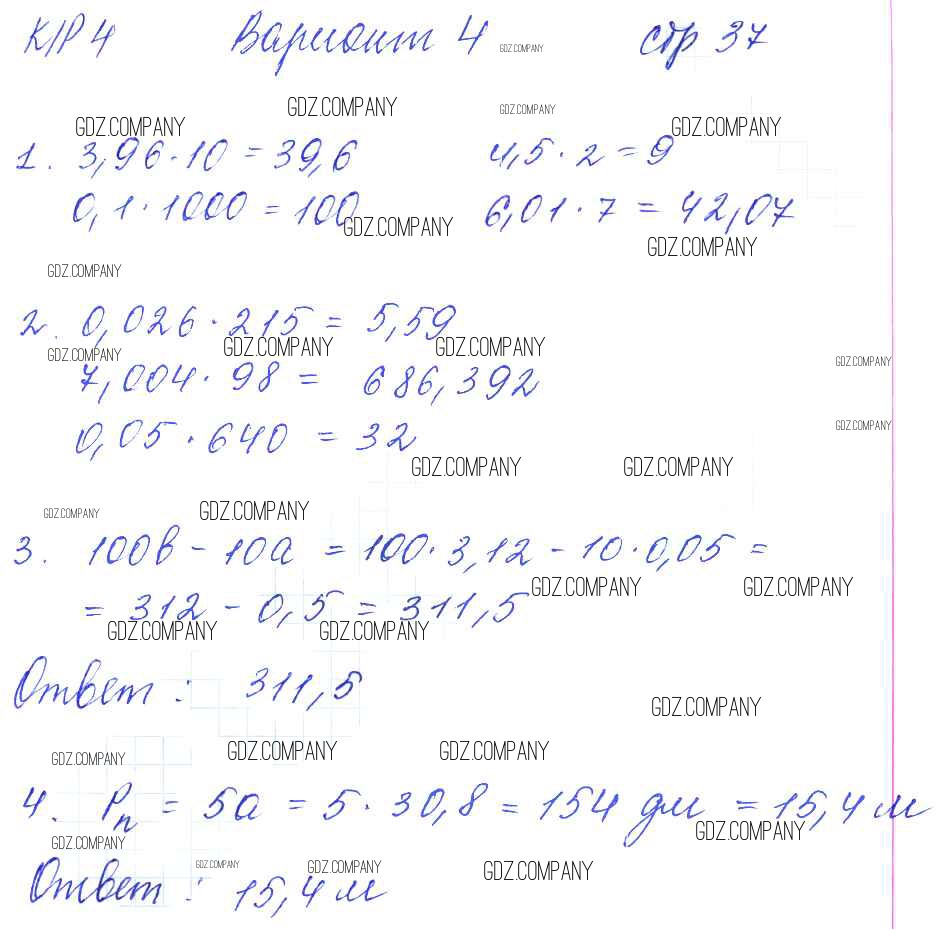 К/Р 4 Вариант 4 GDZ.COMPANY стр 37
GDZ.COMPANY GDZ.COMPANY
GDZ.COMPANY GDZ.COMPANY
1. 3,96·10 = 39,6 4,5·2 = 9
0,1·1000 = 100 6,01·7 = 42,07
GDZ.COMPANY GDZ.COMPANY
GDZ.COMPANY
2. 0,026·215 = 5,59
GDZ.COMPANY GDZ.COMPANY GDZ.COMPANY GDZ.COMPANY
7,004·98 = 686,392
GDZ.COMPANY
0,05·640 = 32
GDZ.COMPANY GDZ.COMPANY
GDZ.COMPANY GDZ.COMPANY
3. 100в - 10а = 100·3,12 - 10·0,05 =
GDZ.COMPANY GDZ.COMPANY
= 312 - 0,5 = 311,5
GDZ.COMPANY GDZ.COMPANY
Ответ: 311,5
GDZ.COMPANY
GDZ.COMPANY GDZ.COMPANY GDZ.COMPANY
4. Pп = 5а = 5·30,8 = 154 дм = 15,4 м
GDZ.COMPANY GDZ.COMPANY
GDZ.COMPANY GDZ.COMPANY GDZ.COMPANY
Ответ: 15,4 м